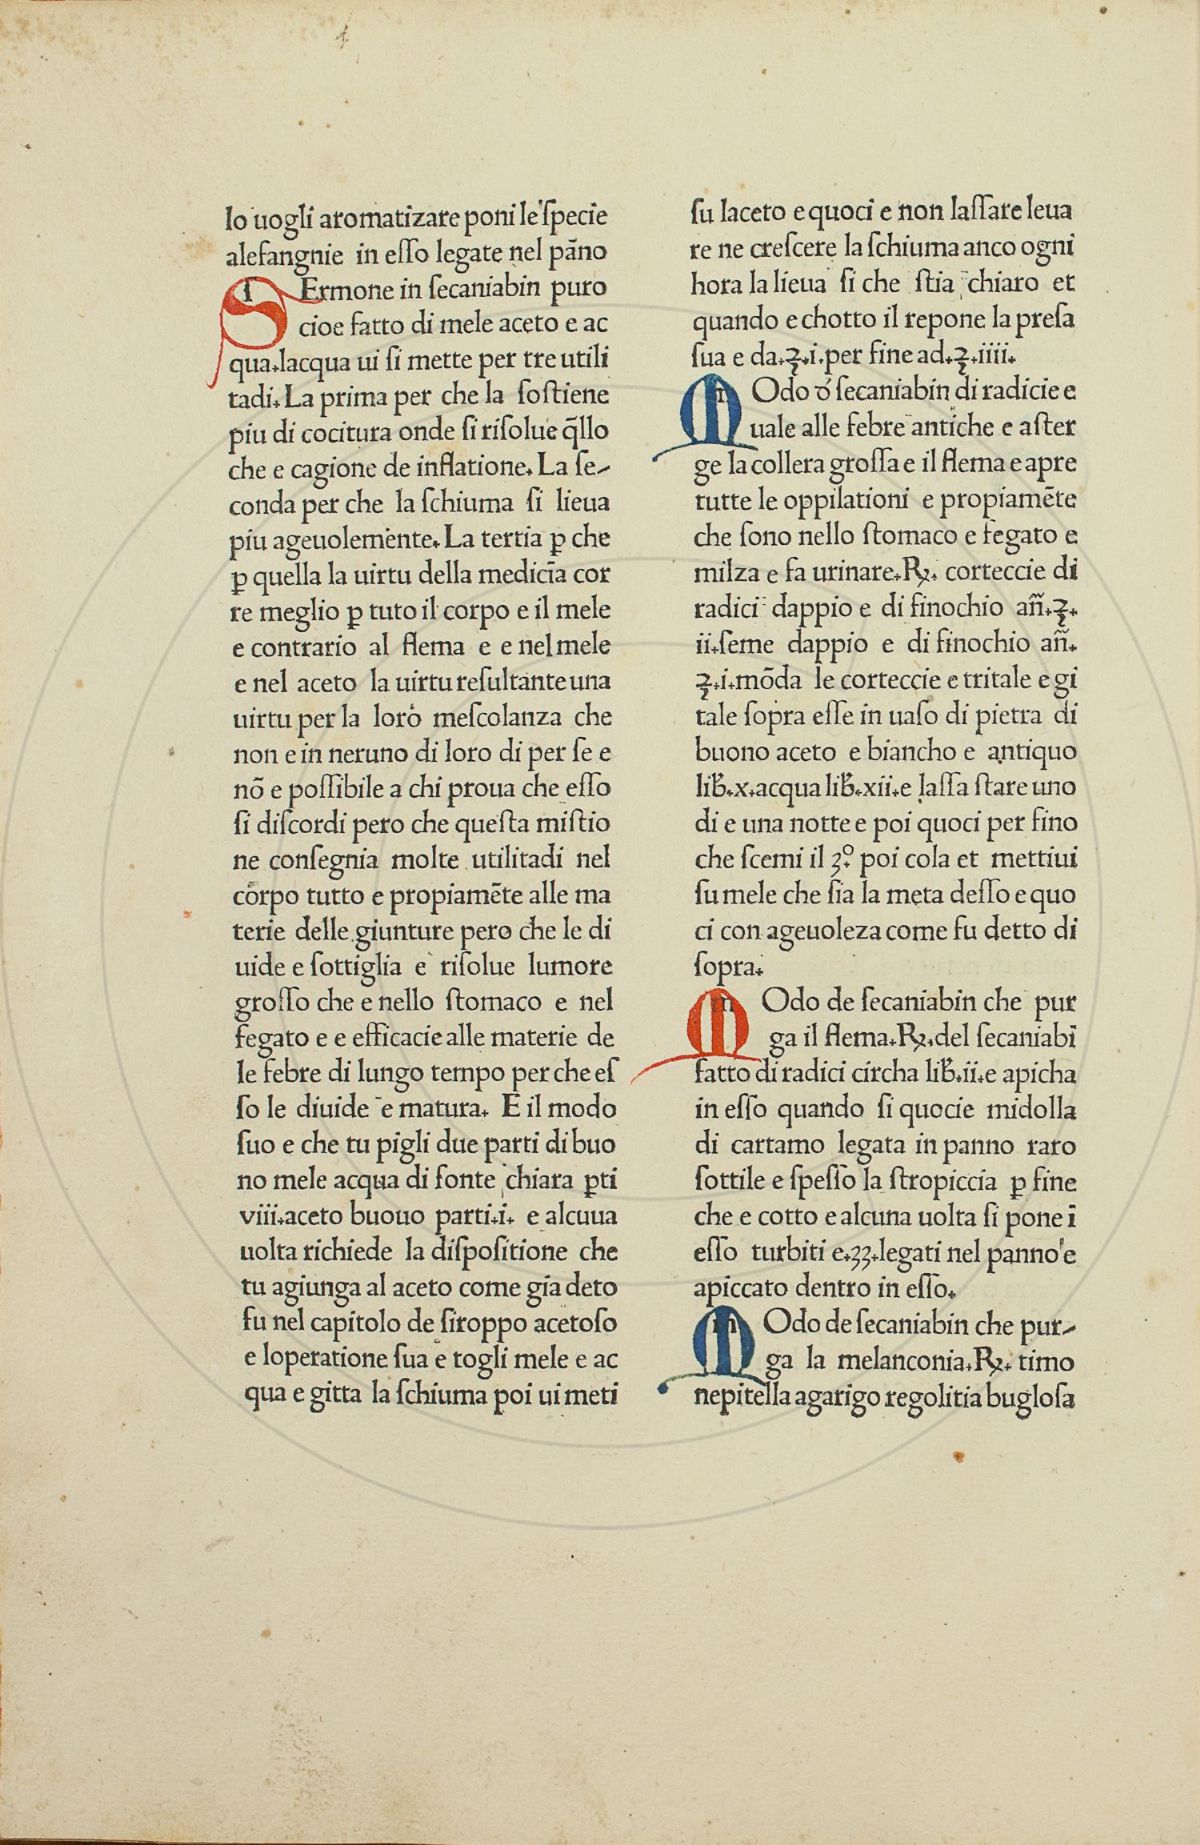 lo uogli aromatizare poni le ſpecie
alefangnie in eſſo legate nel pāno
SErmone in ſecaniabin puro
cioe fatto di mele aceto e ac
qua.lacqua ui ſi mette per tre utili
tadi.La prima per che la ſoſtiene
piu di cocitura onde ſi riſolue q̄llo
che e cagione de inflatione.La ſe-
conda per che la ſchiuma ſi lieua
piu ageuolemente.La tertia ꝑ che
ꝑ quella la uirtu della medicīa cor
re meglio ꝑ tuto il corpo e il mele
e contrario al flema e e nel mele
e nel aceto la uirtu reſultante una
uirtu per la loro meſcolanza che
non e in neruno di loro di per ſe e
nō e poſſibile a chi proua che eſſo
ſi diſcordi pero che queſta miſtio
ne conſegnia molte utilitadi nel
corpo tutto e propiamēte alle ma
terie delle giunture pero che le di
uide e ſottiglia e riſolue lumore
groſſo che e nello ſtomaco e nel
fegato e e efficacie alle materie de
le febre di lungo tempo per che eſ
ſo le diuide e matura. E il modo
ſuo e che tu pigli due parti di buo
no mele acqua di fonte chiara ꝑti
viii.aceto buouo parti.i. e alcuua
uolta richiede la diſpoſitione che
tu agiunga al aceto come gia deto
fu nel capitolo de ſiroppo acetoſo
e loperatione ſua e togli mele e ac
qua e gitta la ſchiuma poi ui meti
ſu laceto e quoci e non laſſare leua
re ne creſcere la ſchiuma anco ogni
hora la lieua ſi che ſtia chiaro et
quando e chotto il repone la preſa
ſua e da.℥.i.per fine ad.℥.iiii.
MOdo d̄ ſecaniabin di radicie e
uale alle febre antiche e aſter
ge la collera groſſa e il flema e apre
tutte le oppilationi e propiamēte
che ſono nello ſtomaco e fegato e
milza e fa urinare.℞. corteccie di
radici dappio e di finochio an̄.℥.
ii.ſeme dappio e di finochio an̄.
℥.i.mōda le corteccie e tritale e gi
tale ſopra eſſe in uaſo di pietra di
buono aceto e biancho e antiquo
lib̄.x.acqua lib̄.xii.e laſſa ſtare uno
di e una notte e poi quoci per fino
che ſcemi il 3º. poi cola et mettiui
ſu mele che ſia la meta deſſo e quo
ci con ageuoleza come fu detto di
ſopra.
MOdo de ſecaniabin che pur
ga il flema.℞.del ſecaniabī
fatto di radici circha lib̄.ii.e apicha
in eſſo quando ſi quocie midolla
di cartamo legata in panno raro
ſottile e ſpeſſo la ſtropiccia ꝑ fine
che e cotto e alcuna uolta ſi pone ī
eſſo turbiti e.ʒʒ.legati nel panno e
apiccato dentro in eſſo.
MOdo de ſecaniabin che pur-
ga la melanconia.℞. timo
nepitella agarigo regolitia bugloſa